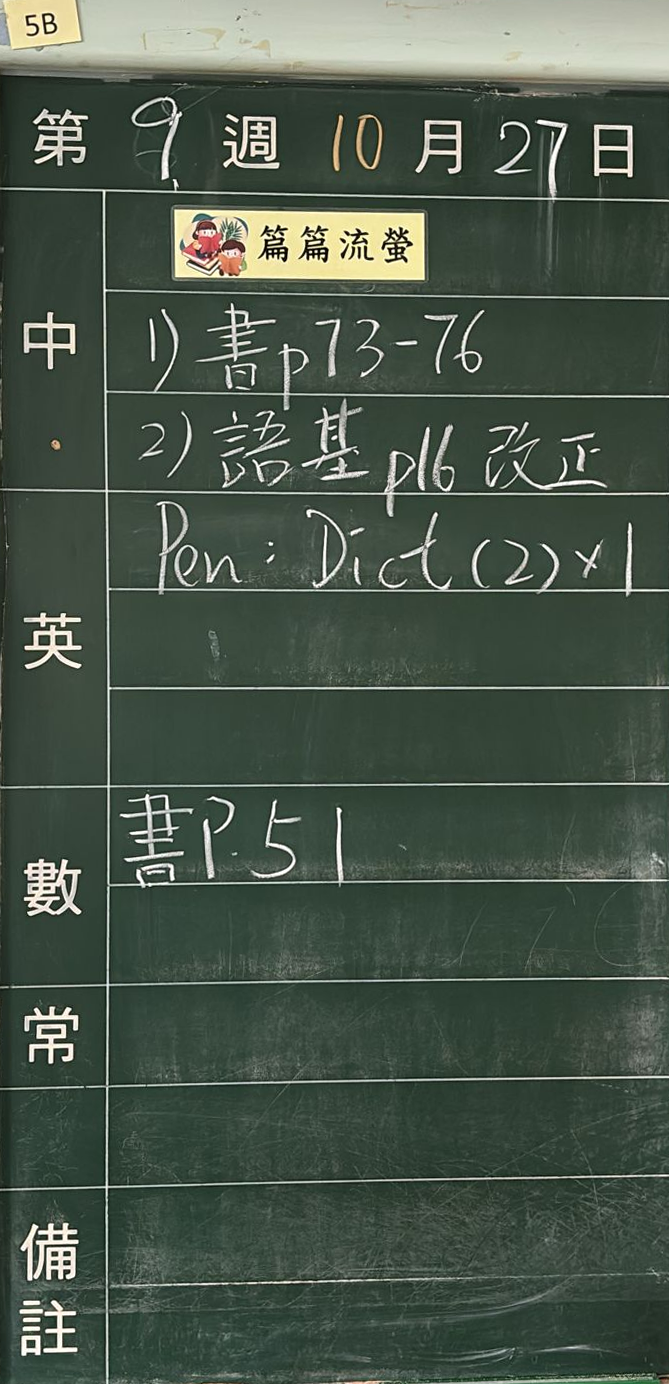 5B
第 9 週 10 月 27 日
篇篇流螢
中
1) 書p73-76
2) 語基p16 改正
英
Pen: Dict (2)×1
數
書P.51
常
備註